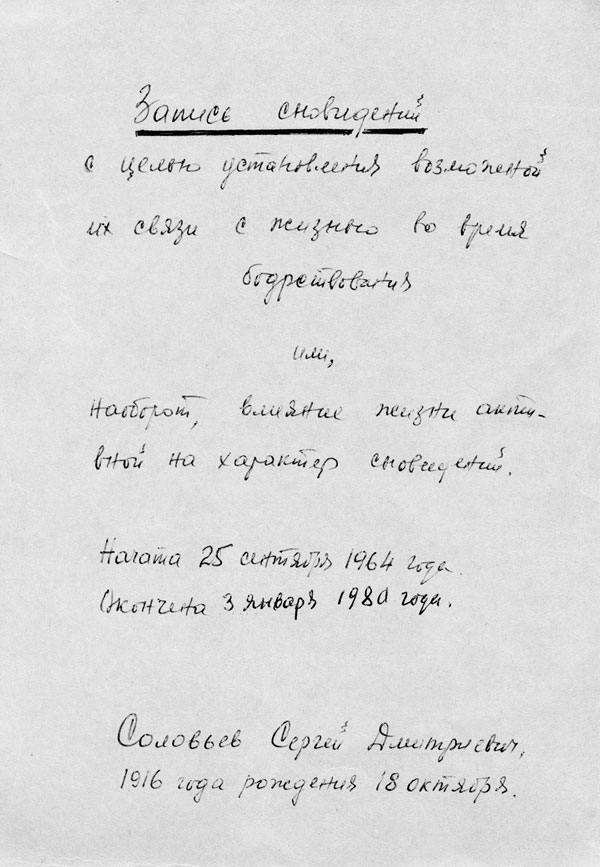 Запись сновидений
с целью установления возможной
их связи с жизнью во время
бодрствования
или,
наоборот, влияние жизни акти-
вной на характер сновидений.
Начата 25 сентября 1964 года.
Окончена 3 января 1980 года.
Соловьев Сергей Дмитриевич,
1916 года рождения 18 октября.